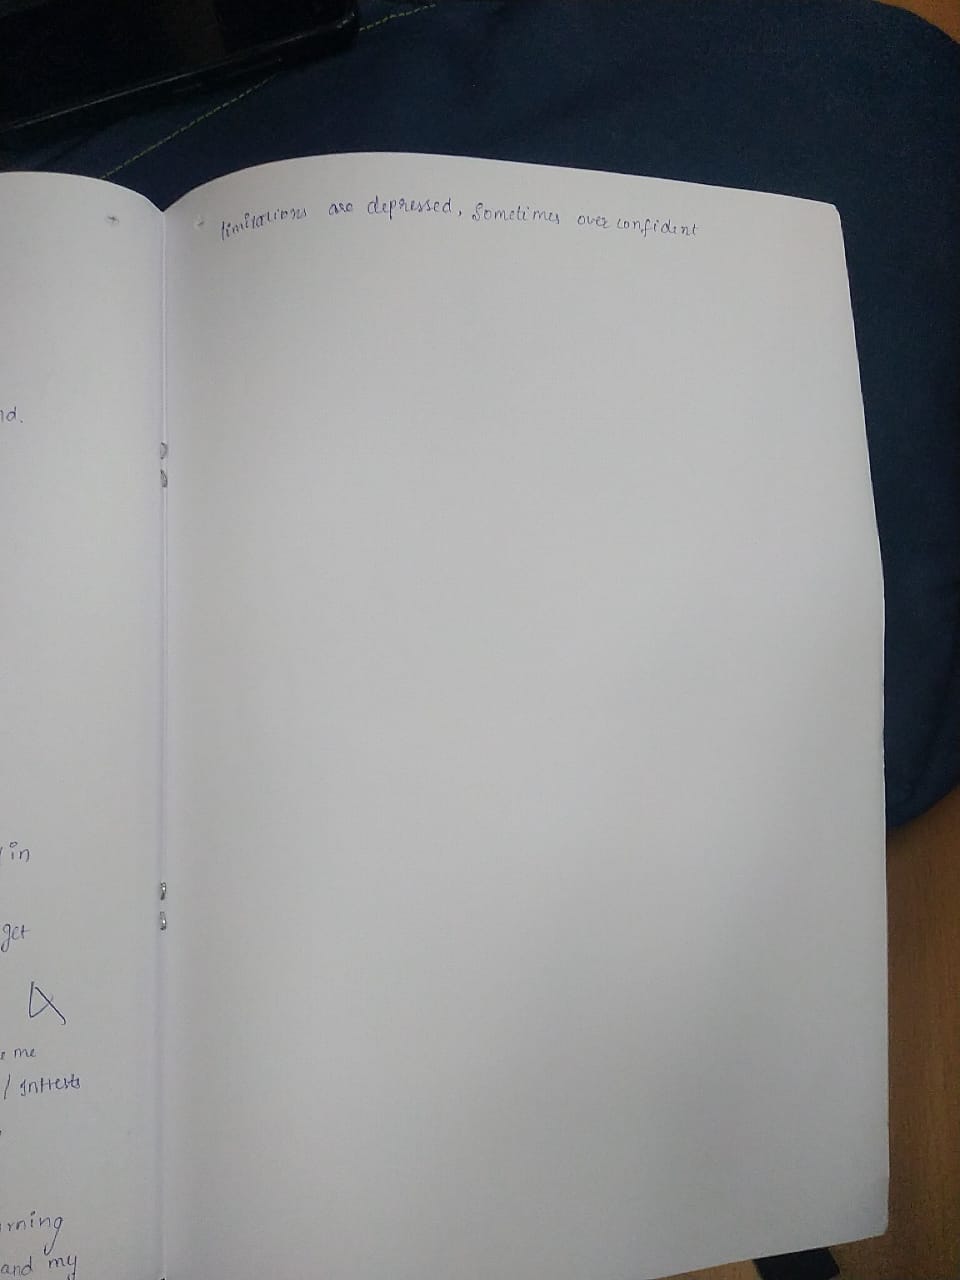 in
get
me
/ Intrests
and my
limitations are depressed, Sometimes over confident